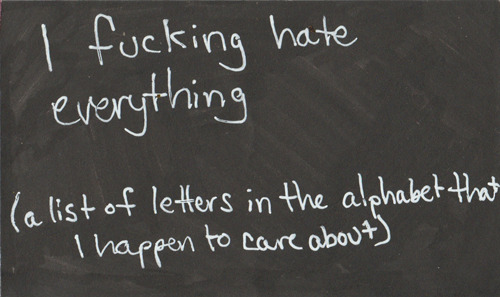 I fucking hate
everything
(a list of letters in the alphabet that
I happen to care about)